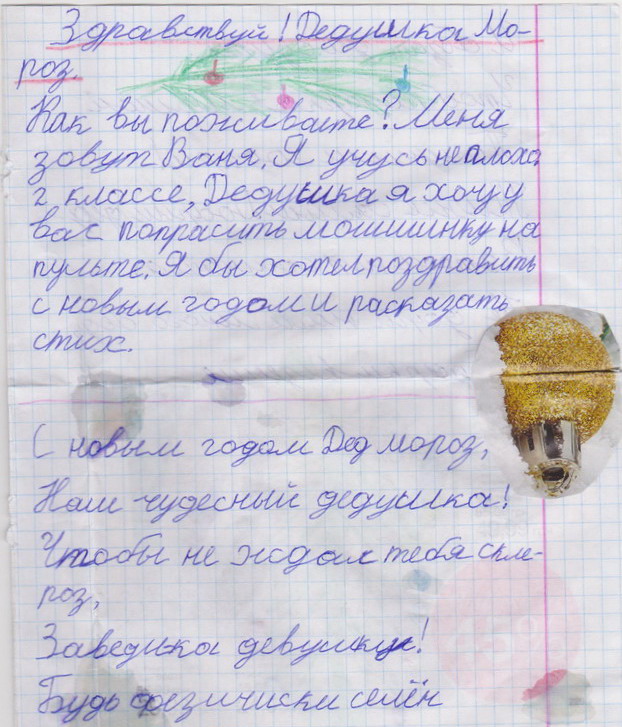 Здравствуй! Дедушка Мо-
роз.
Как вы поживаете? Меня
зовут Ваня. Я учусь неплоха
2 классе, Дедушка я хочу у
вас попрасить мошиинку на
пульте. Я бы хотел поздравить
с новым годом и расказать
стих.
С новым годом Дед мороз,
Наш чудесный дедушка!
Чтобы не ждал тебя скле-
роз,
Заведи-ка девушку!
Будь физичиски селён